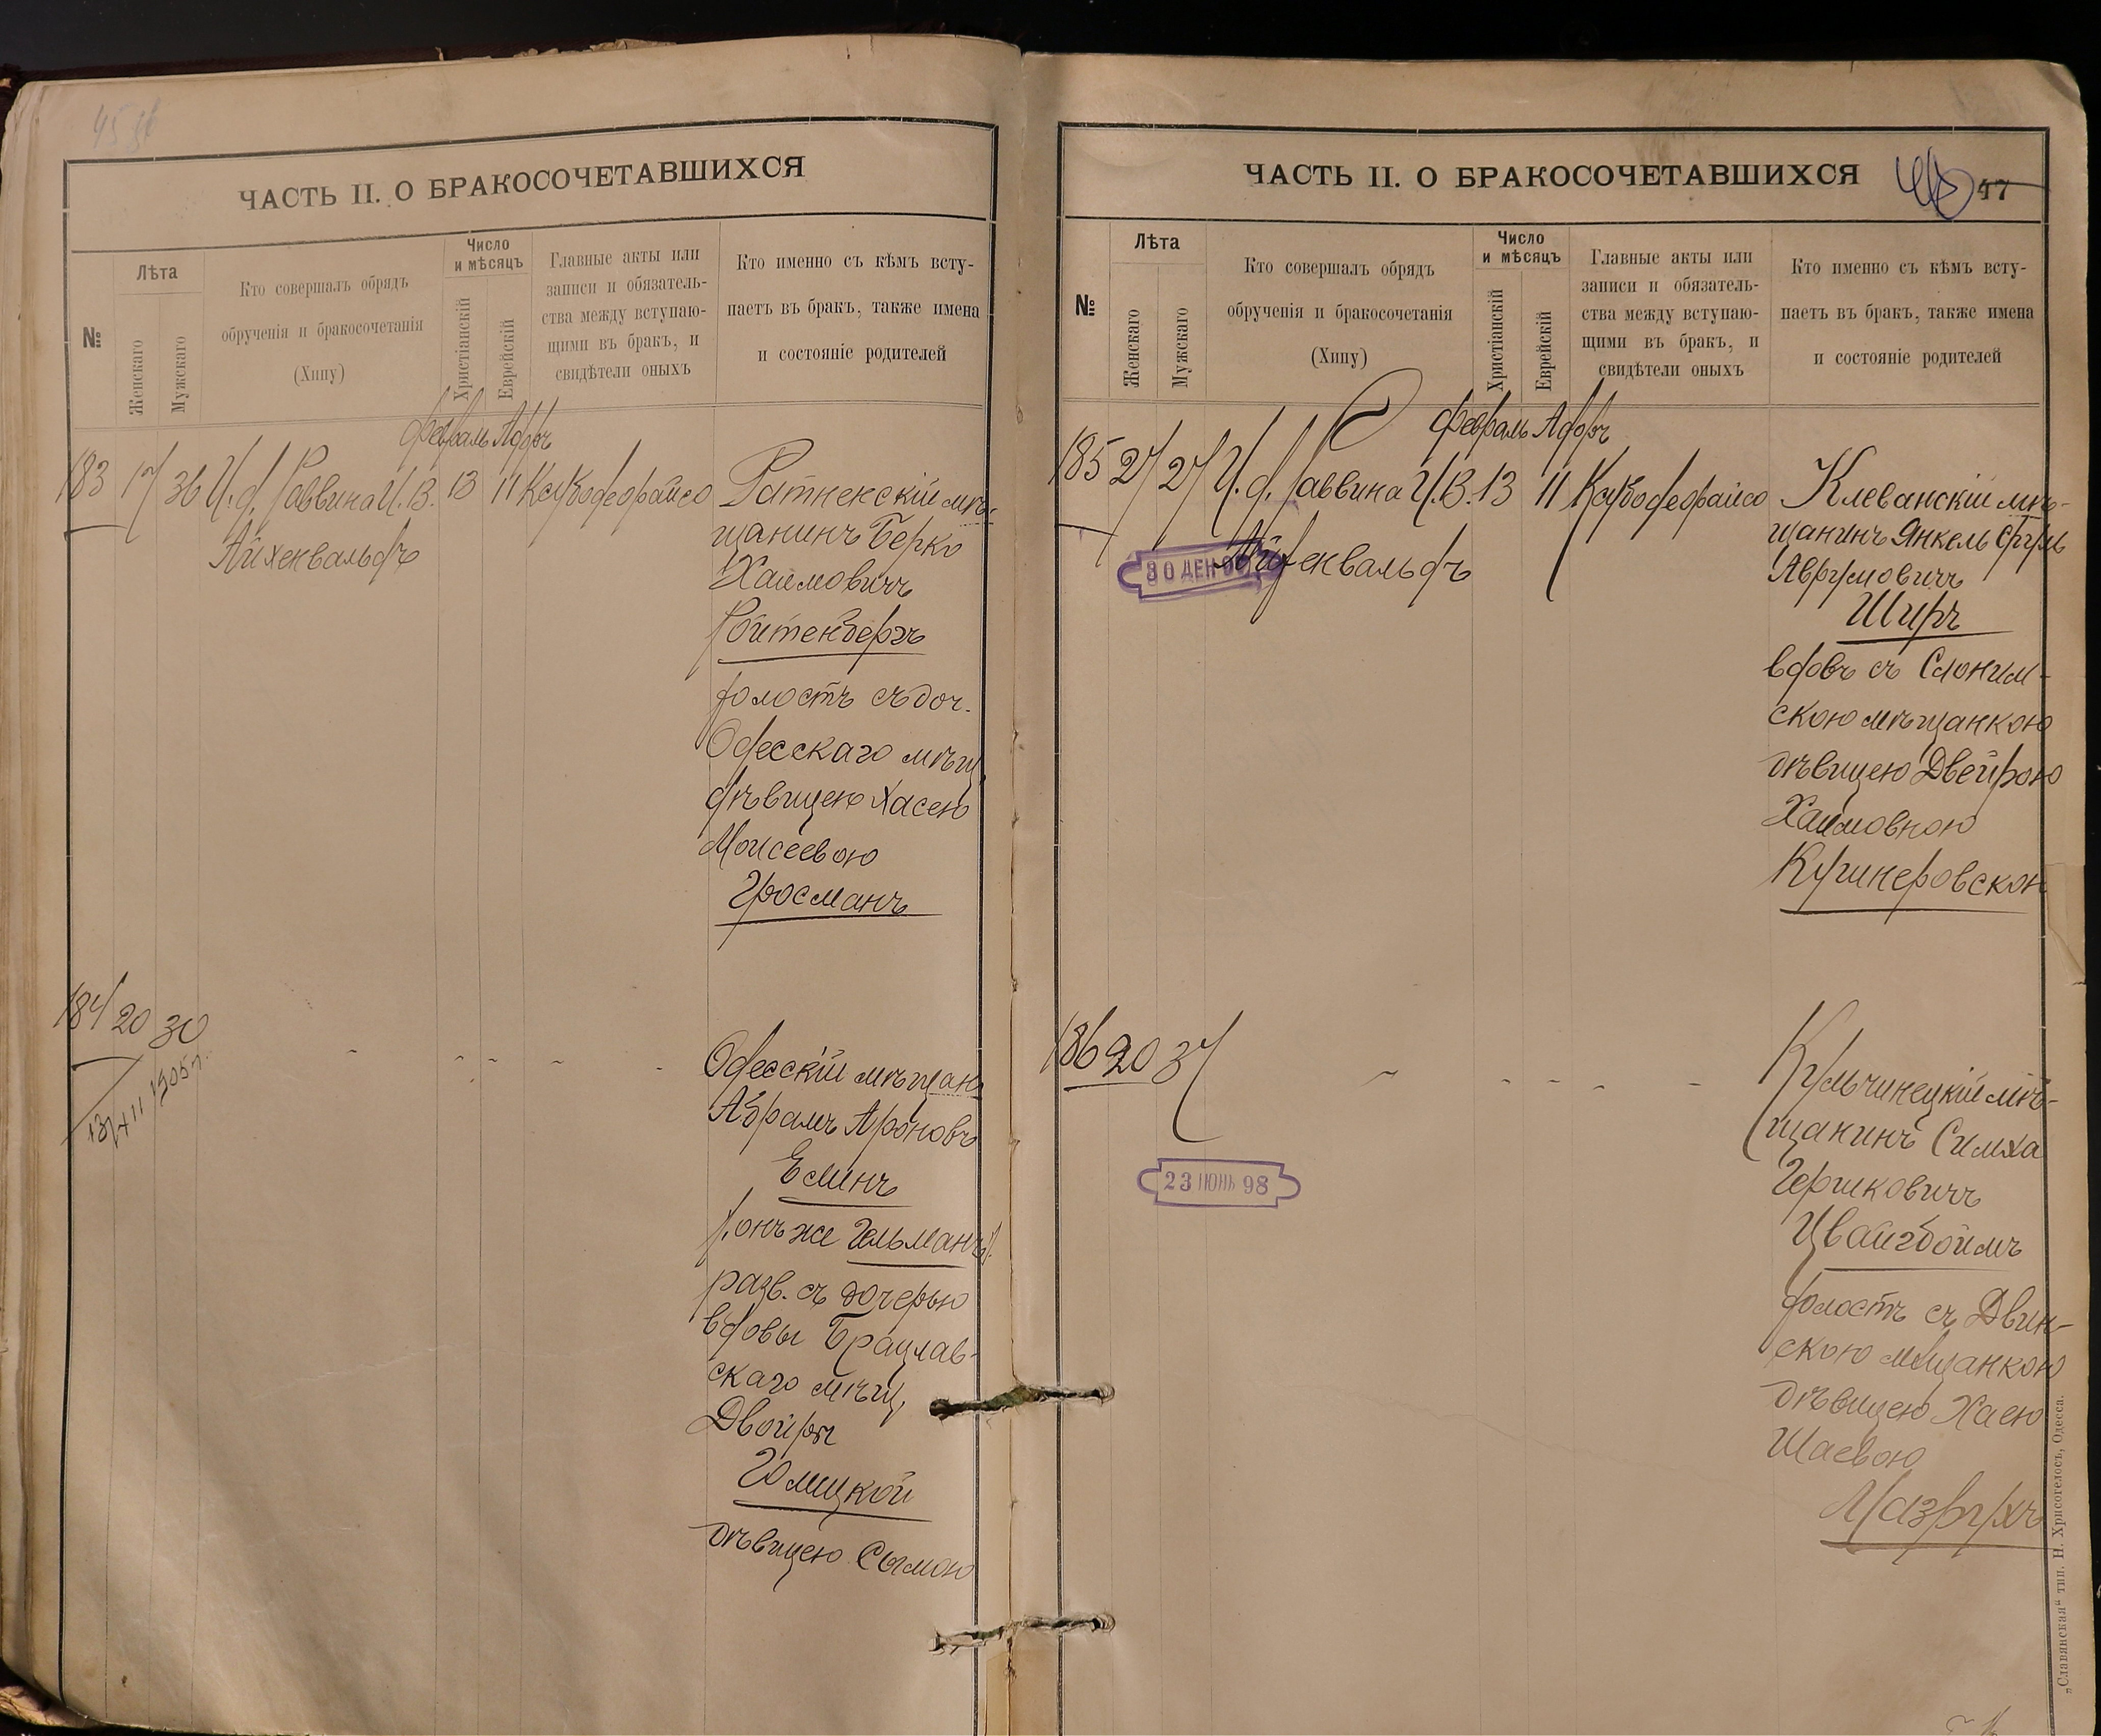 ЧАСТЬ II. О БРАКОСОЧЕТАВШИХСЯ
№
Лѣта
Женскаго
Мужскаго
Кто совершалъ обрядъ
обрученія и бракосочетанія
(Хипу)
Число
и мѣсяцъ
Христіанскій
Еврейскій
Главные акты или
записи и обязатель-
ства между вступаю-
щими въ бракъ, и
свидѣтели оныхъ
Кто именно съ кѣмъ всту-
паетъ въ бракъ, также имена
и состояніе родителей
Февраль Адоръ
183 17 36 И. д. Раввина И. В. 13 11
Айхенвальдъ
Ратненскій мѣ-
щанинъ Берко
Хаимовичъ
Ройтенбергъ
холостъ съ доч.
Одесскаго мѣщ.
дѣвицею Хасею
Моисеевою
Гросманъ
184 20 30
Одесскій мѣщан.
Абрамъ Ароновъ
Еминъ
/онъ же Гельманъ/
разв. съ дочерью
вдовы Брацлав-
скаго мѣщ.
Двойры
дѣвицею Сымою
ЧАСТЬ II. О БРАКОСОЧЕТАВШИХСЯ
47
№
Лѣта
Женскаго
Мужскаго
Кто совершалъ обрядъ
обрученія и бракосочетанія
(Хипу)
Число
и мѣсяцъ
Христіанскій
Еврейскій
Главные акты или
записи и обязатель-
ства между вступаю-
щими въ бракъ, и
свидѣтели оныхъ
Кто именно съ кѣмъ всту-
паетъ въ бракъ, также имена
и состояніе родителей
Февраль Адоръ
185 27 27 И. д. Раввина И. В. 13 11
Айхенвальдъ
30 ДЕК
Клеванскій мѣ-
щанинъ Янкель Сруль
Аврумовичъ
Ширъ
вдовъ съ Слоним-
скою мѣщанкою
дѣвицею Двейрою
Хаимовною
186 20 37
23 ІЮНЬ 98
Кульчинецкій мѣ-
щанинъ Симха
Гершковичъ
Цвайгбоймъ
холостъ съ Двин-
скою мѣщанкою
дѣвицею Хаею
Шаевою
Мазурхъ
„Славянская“ тип. Н. Хрисогелосъ, Одесса.